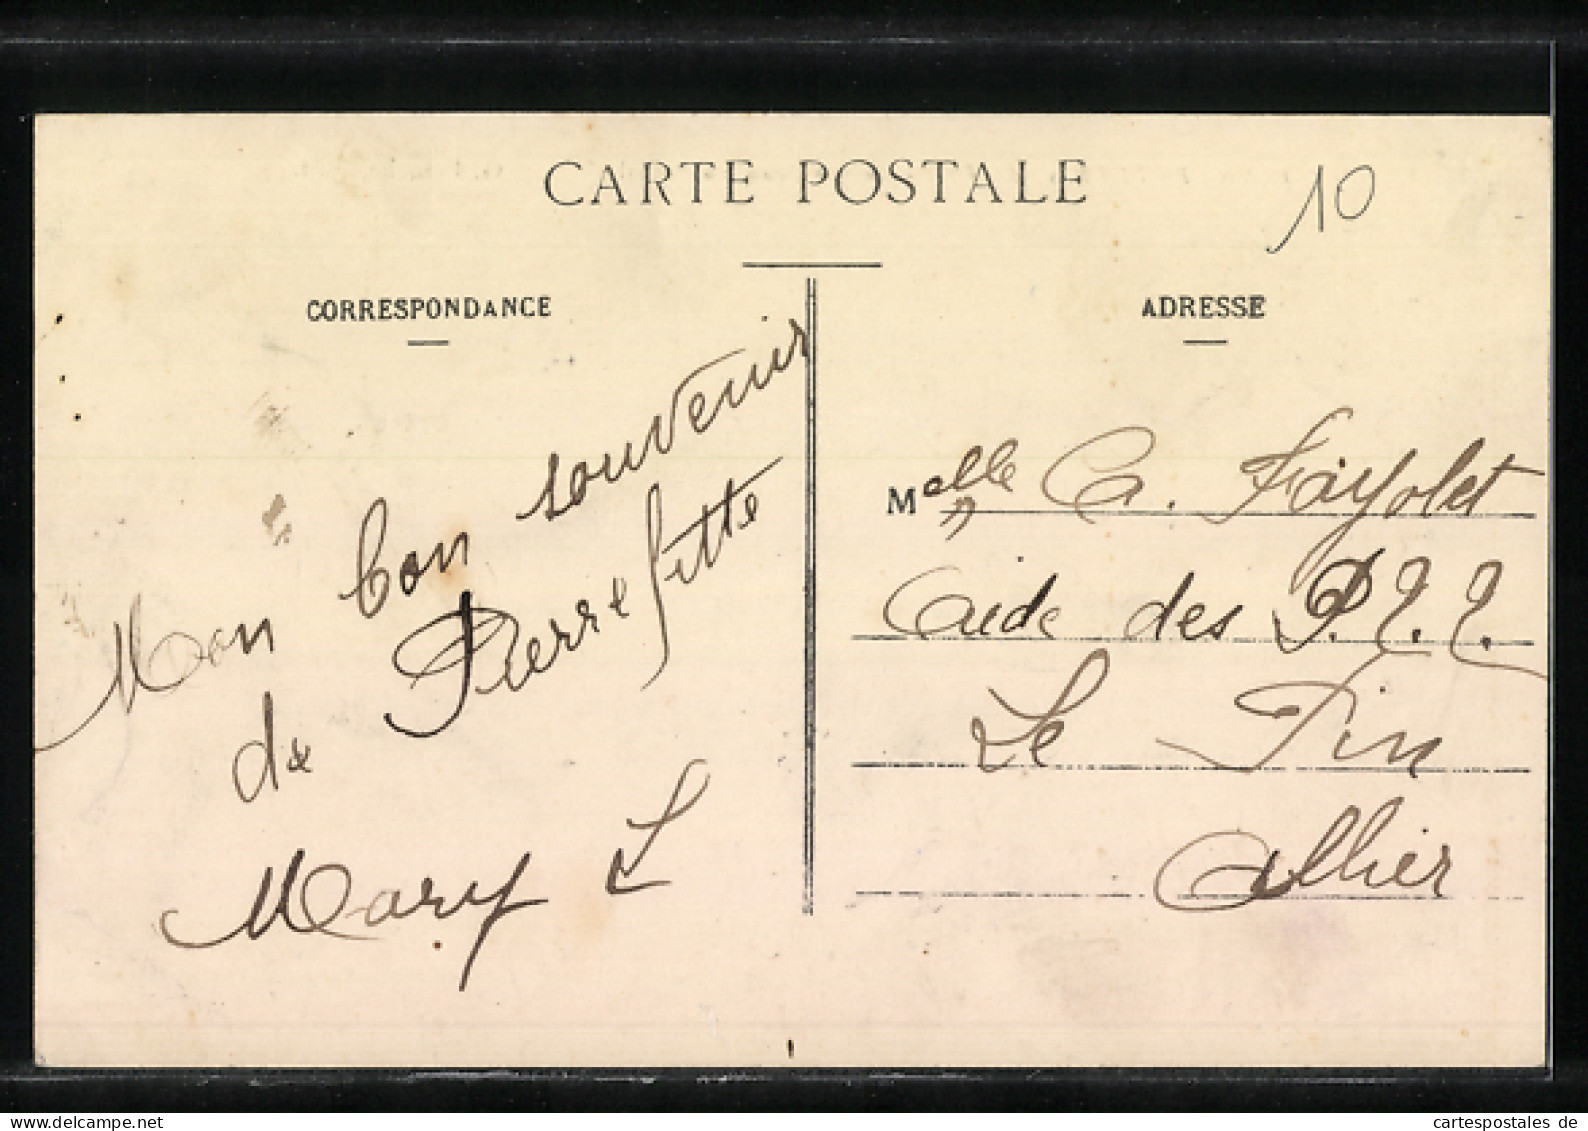 CARTE POSTALE
10
CORRESPONDANCE
Mon bon souvenir
de Pierrefitte
Mary L
ADRESSE
Melle A. Fayolet
Aide des P.T.T.
Le Pin
Allier
cartespostales de